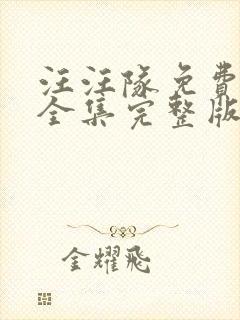 汪汪隊免費
全集完整版
金耀飛